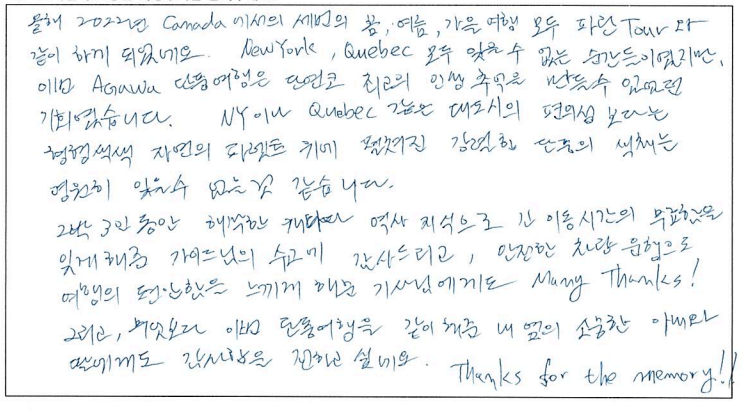 올해 2022년 Canada에서의 세번의 봄, 여름, 가을 여행 모두 파란 Tour와
같이 하게 되었네요. NewYork, Quebec 모두 잊을 수 없는 순간들이였지만,
이번 Agawa 단풍여행은 단연코 최고의 인생 추억을 만들수 있었던
기회였습니다. NY이나 Quebec 같은 대도시의 편의성 보다는
형형색색 자연의 파렛트 위에 펼쳐진 강렬한 단풍의 색채는
영원히 잊을수 없는것 같습니다.
2박 3일 동안 해박한 캐나다 역사 지식으로 긴 이동시간의 무료함을
잊게해준 가이드님의 수고에 감사드리고, 안전한 차량 운행으로
여행의 편안함을 느끼게 해준 기사님에게도 Many Thanks!
그리고, 무엇보다 이번 단풍여행을 같이 해준 내 옆의 소중한 아내와
딸에게도 감사함을 전하고 싶네요. Thanks for the memory!!